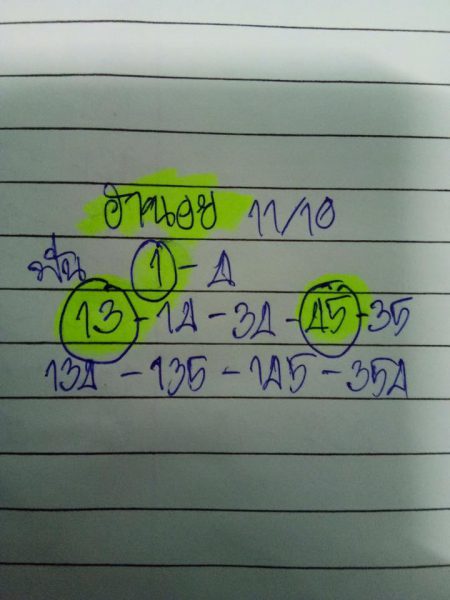 ฮานอย 11/10
ฟัน 1 - 4
13 - 14 - 34 - 45 - 35
134 - 135 - 145 - 354